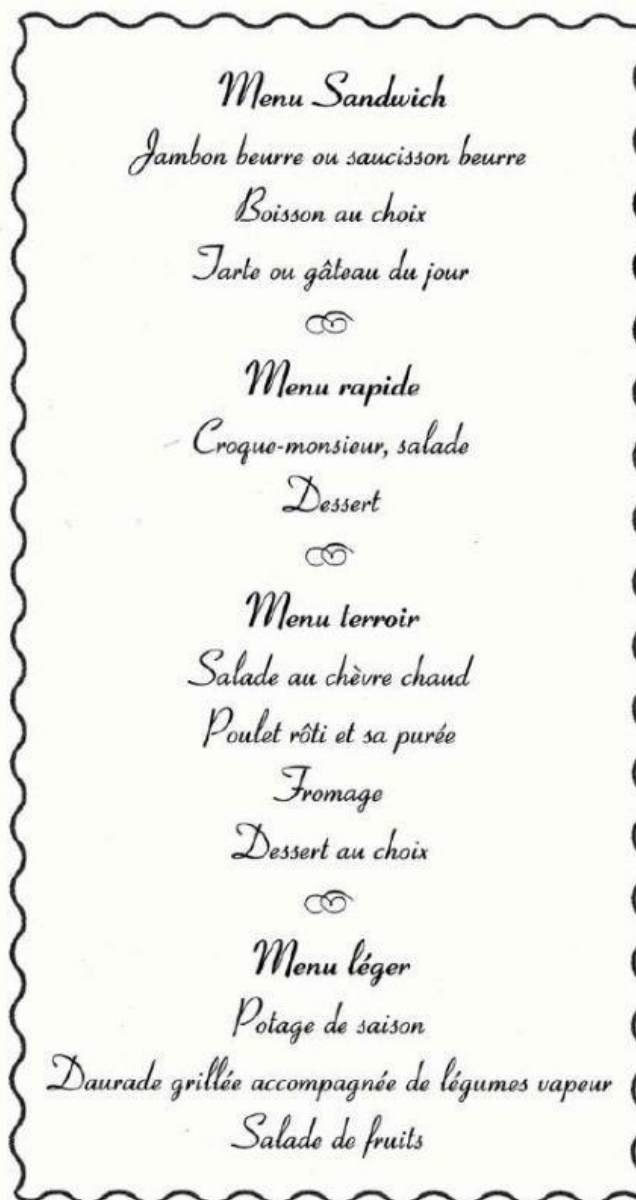 Menu Sandwich
Jambon beurre ou saucisson beurre
Boisson au choix
Tarte ou gâteau du jour
Menu rapide
Croque-monsieur, salade
Dessert
Menu terroir
Salade au chèvre chaud
Poulet rôti et sa purée
Fromage
Dessert au choix
Menu léger
Potage de saison
Daurade grillée accompagnée de légumes vapeur
Salade de fruits